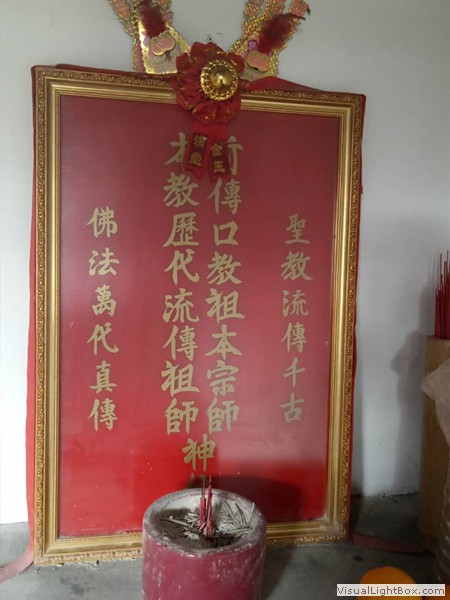 金玉
滿堂
聖教流傳千古
傳口教祖本宗師
本教歷代流傳祖師
神
佛法萬代真傳
VisualLightBox.com